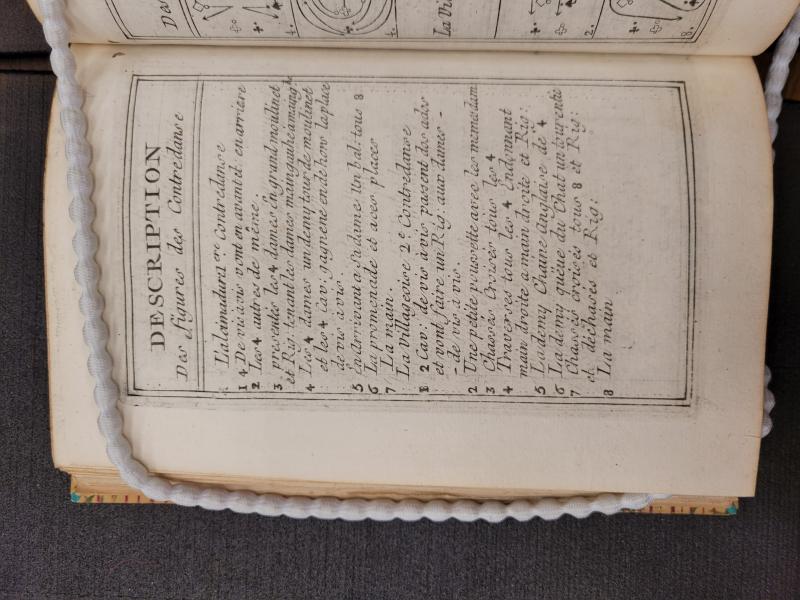 DESCRIPTION
Des figures des Contredanse
L'aleimadura 1 ere Contredanse
1 4 De vis à vis vont en avant et en arriére
2 Les 4 autres de même.
3 présentes les 4 dames En grand moulinet
et Rig: tenant les dames main gauhe a main g he
4 Les 4 dames un demy tour de moulinet
et les 4 Cav: gagnent en dehors la place
de vis à vis.
5 en arrivant a Sa dame Un bal: tous 8
6 La promenade et a ces places
7 La main.
La Villageoise 2 e Contredanse
1 2 Cav: de vis à vis passent dos ados
et vont faire un Rig: aux dames -
- de vis à vis
2 Une petite poussette avec les meme dam
3 Chassés Croisés tous les 4
4 Traverses tous les 4 En donnant
main droite a main droite et Rig:
5 La demy Chaine anglaise de 4
6 La demy quëue du Chat un tour entie
7 Chassés croisés tous 8 et Rig:
et déchasés et Rig:
8 La main
Des
La Vil
4.
2.
8.